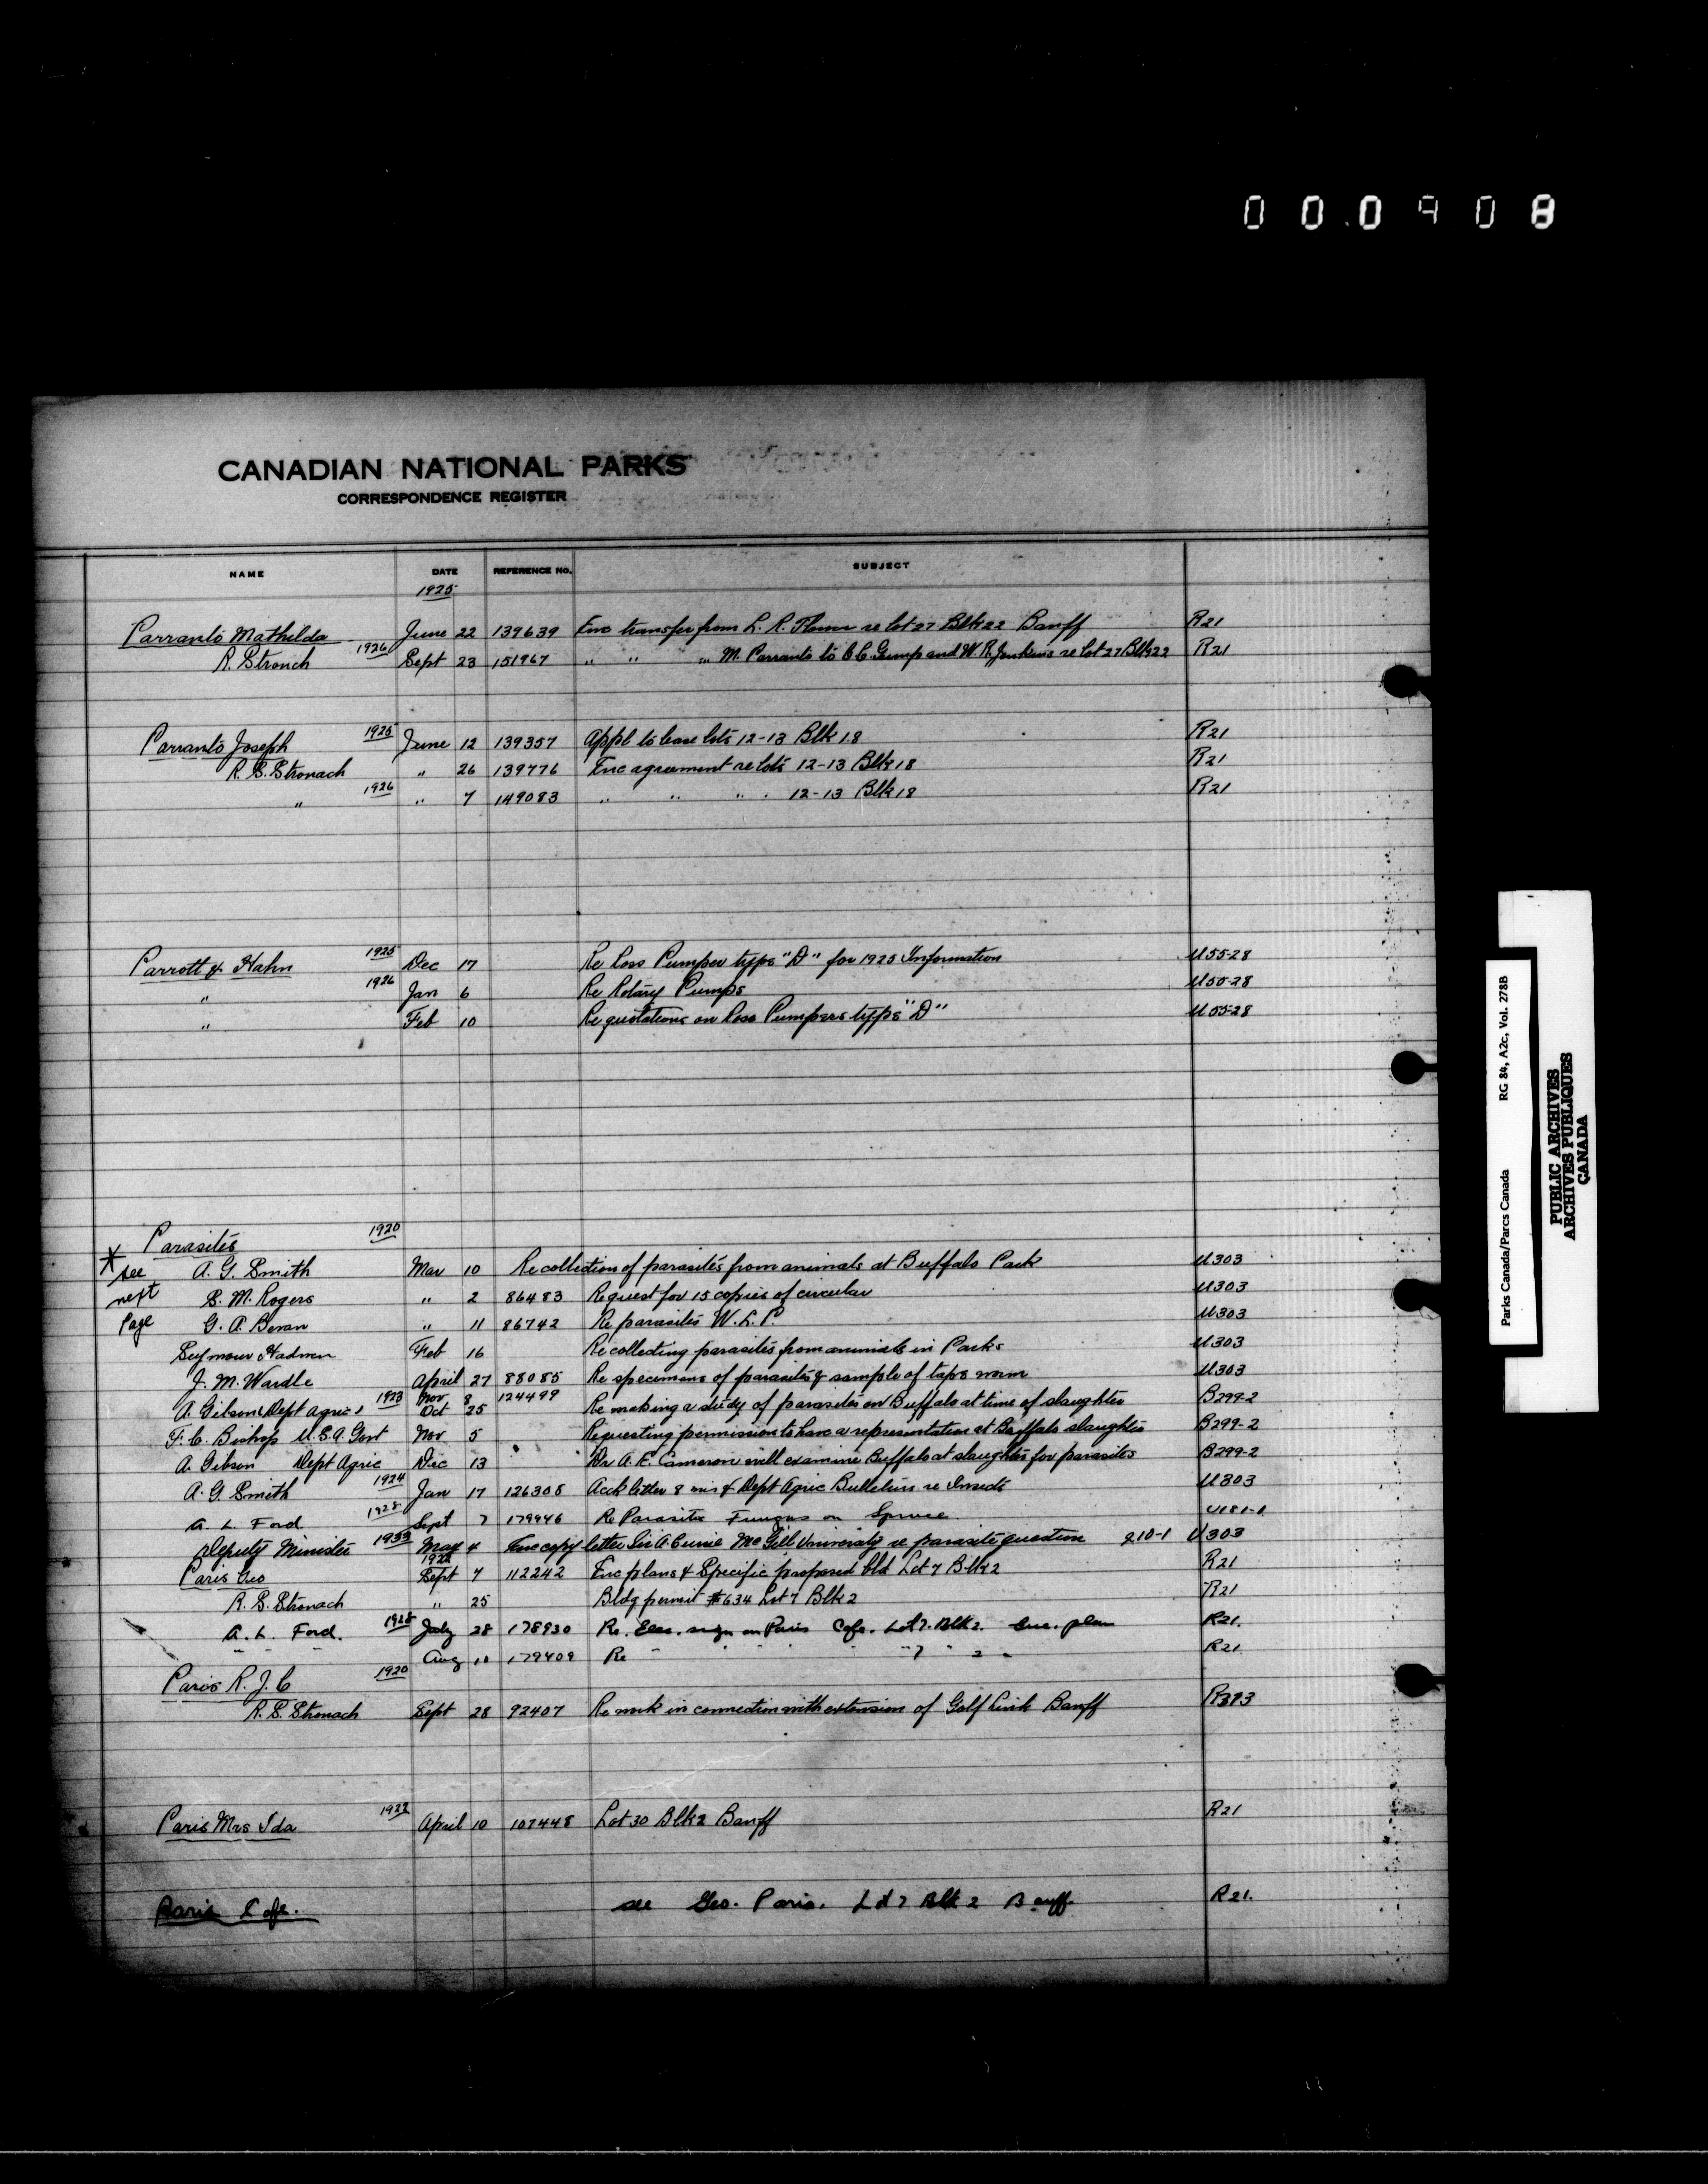 000908
CANADIAN NATIONAL PARKS
CORRESPONDENCE REGISTER
NAME DATE REFERENCE NO. SUBJECT
1925
Parranto Mathilda June 22 139639 Enc transfer from L. R. Flower re lot 27 Blk 22 Banff R21
R. Stronch 1926 Sept 23 151967 " " " M. Parranto to C.C. Gump and W. R. Jenkins re Lot 27 Blk 22 R21
Parranto Joseph 1925 June 12 139357 Appl to lease lots 12-13 Blk 18 R21
R. S. Stronach " 26 139776 Enc agreement re lots 12-13 Blk 18 R21
" 1926 " 7 149083 " " " " 12-13 Blk 18 R21
Parrott & Hahn 1925 Dec 17 Re Ross Pumper type "D" for 1925 Information U55-28
" 1926 Jan 6 Re Rotary Pumps U55-28
" Feb 10 Re quotations on Ross Pumpers type "D" U55-28
Parasites 1920
* see A. G. Smith Mar 10 Re collection of parasites from animals at Buffalo Park U303
next S. M. Rogers " 2 86483 Request for 15 copies of circular U303
Page G. A. Bevan " 11 86742 Re parasites W. L. P. U303
Seymour Hadwen Feb 16 Re collecting parasites from animals in Parks U303
J. M. Wardle April 27 88085 Re specimens of parasites & sample of tape worm U303
Nov 8 124499
A. Gibson Dept Agric 1923 Oct 25 Re making a study of parasites on Buffalo at time of slaughter B299-2
F. C. Bishop U.S.A. Govt Nov 5 Requesting permission to have a representation at Buffalo slaughter B299-2
A. Gibson Dept Agric Dec 13 Dr A. E. Cameron will examine Buffalo at slaughter for parasites B299-2
A. G. Smith 1924 Jan 17 126308 Ack letter 8 & Dept Agric Bulletins re Insects U303
A. L. Ford 1928 Sept 7 179946 Re Parasite Fungus on Spruce U181-1
Deputy Minister 1933 May 4 Enc copy letter Sir A. Currie McGill University re parasite question 210-1 U303
1922
Paris Geo Sept 7 112242 Enc plans & Specific proposed bld Lot 7 Blk 2 R21
R. S. Stronach " 25 Bldg permit #634 Lot 7 Blk 2 R21
A. L. Ford. 1928 July 28 178930 Re. Elec. sign on Paris Cafe. Lot 7. Blk 2. Enc. plan R21.
" " " Aug 10 179409 Re " " " " 7 " 2 " R21
Paris R. J. C 1920
R. S. Stronach Sept 28 92407 Re work in connection with extension of Golf Link Banff R393
Paris Mrs Ida 1922 April 10 107448 Lot 30 Blk 2 Banff R21
Paris Cafe. see Geo. Paris. Lot 7 Blk 2 Banff. R21.
Parks Canada/Parcs Canada RG 84, A2c, Vol. 278B
PUBLIC ARCHIVES
ARCHIVES PUBLIQUES
CANADA